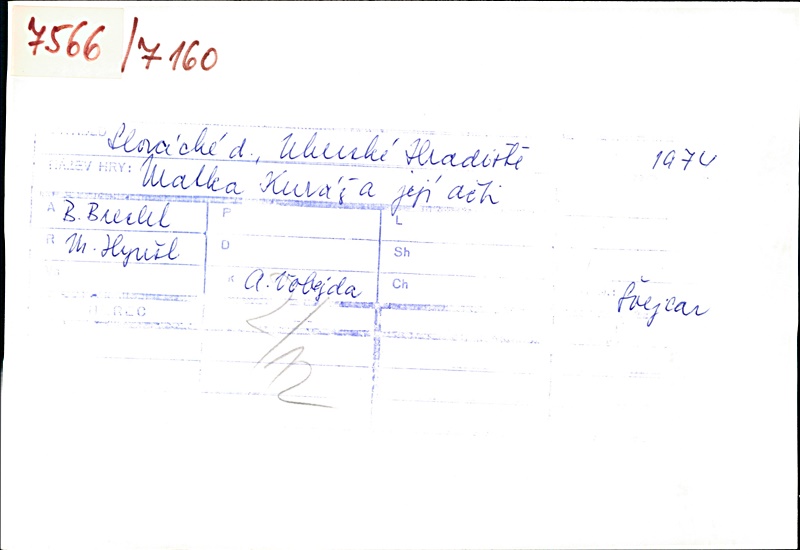 7566/7160
Slovácké d., Uherské Hradiště 1974
NÁZEV HRY: Matka Kuráž a její děti
A B. Brecht P L
R M. Hynšt D Sh
K A. Vobejda Ch Švejcar